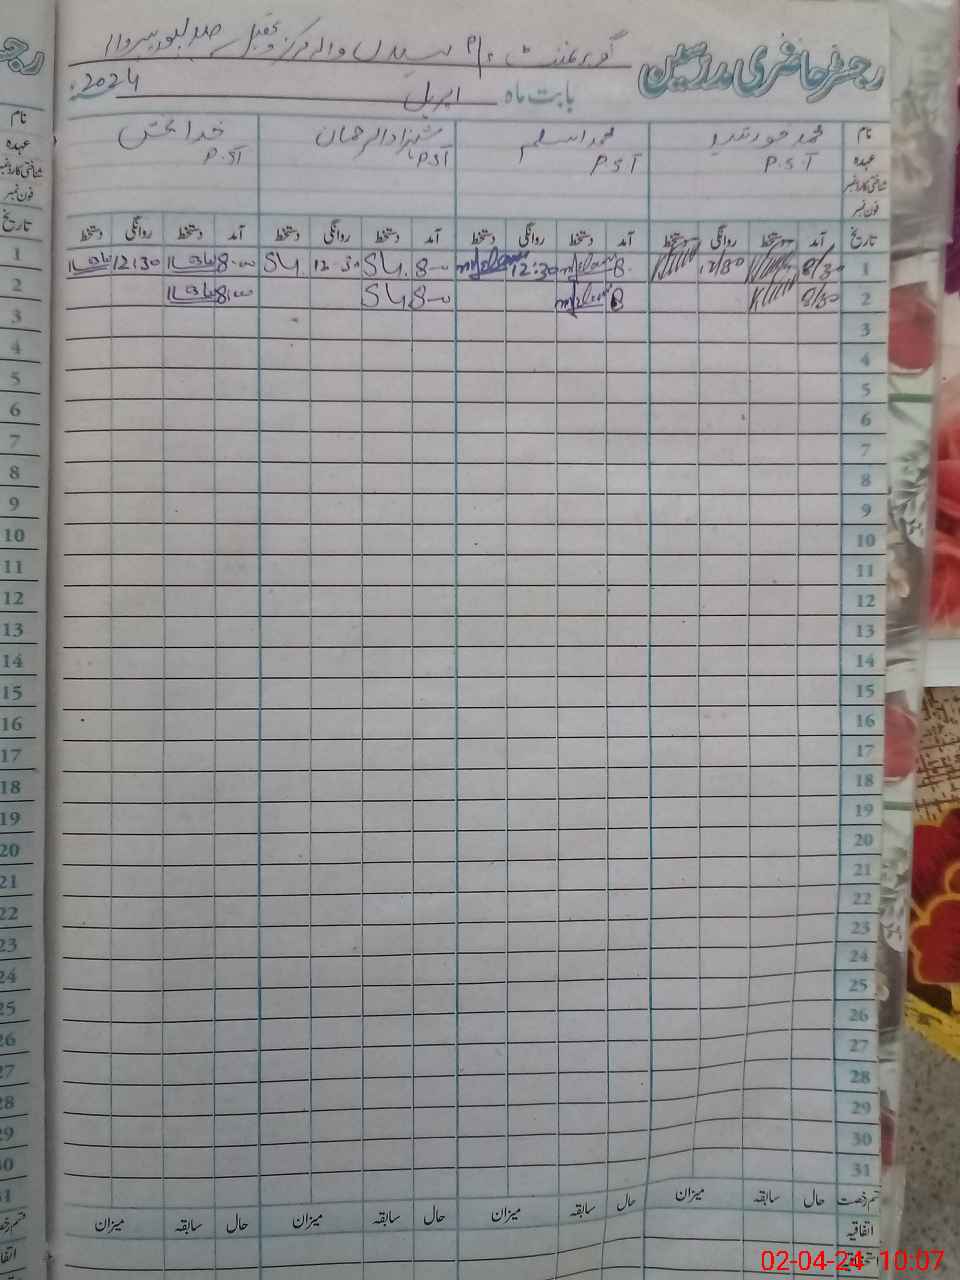 رجسٹر حاضری مدرسین گورنمنٹ
بابت ماہ اپریل 2024
نام محمد خورشید محمد اسلم شہزاد الرحمان خدا بخش
عہدہ P.S.T P.S.T P.S.T P.S.T
شناختی کارڈ نمبر
فون نمبر
تاریخ آمد دستخط روانگی دستخط آمد دستخط روانگی دستخط آمد دستخط روانگی دستخط آمد دستخط روانگی دستخط
1 8/30 12/30 8 12:30 8-00 12-30 8:00 12:30
2 8/30 8 8-00 8:00
3
4
5
6
7
8
9
10
11
12
13
14
15
16
17
18
19
20
21
22
23
24
25
26
27
28
29
30
31
قسم رخصت حال سابقہ میزان حال سابقہ میزان حال سابقہ میزان حال سابقہ میزان
اتفاقیہ
02-04-24 10:07